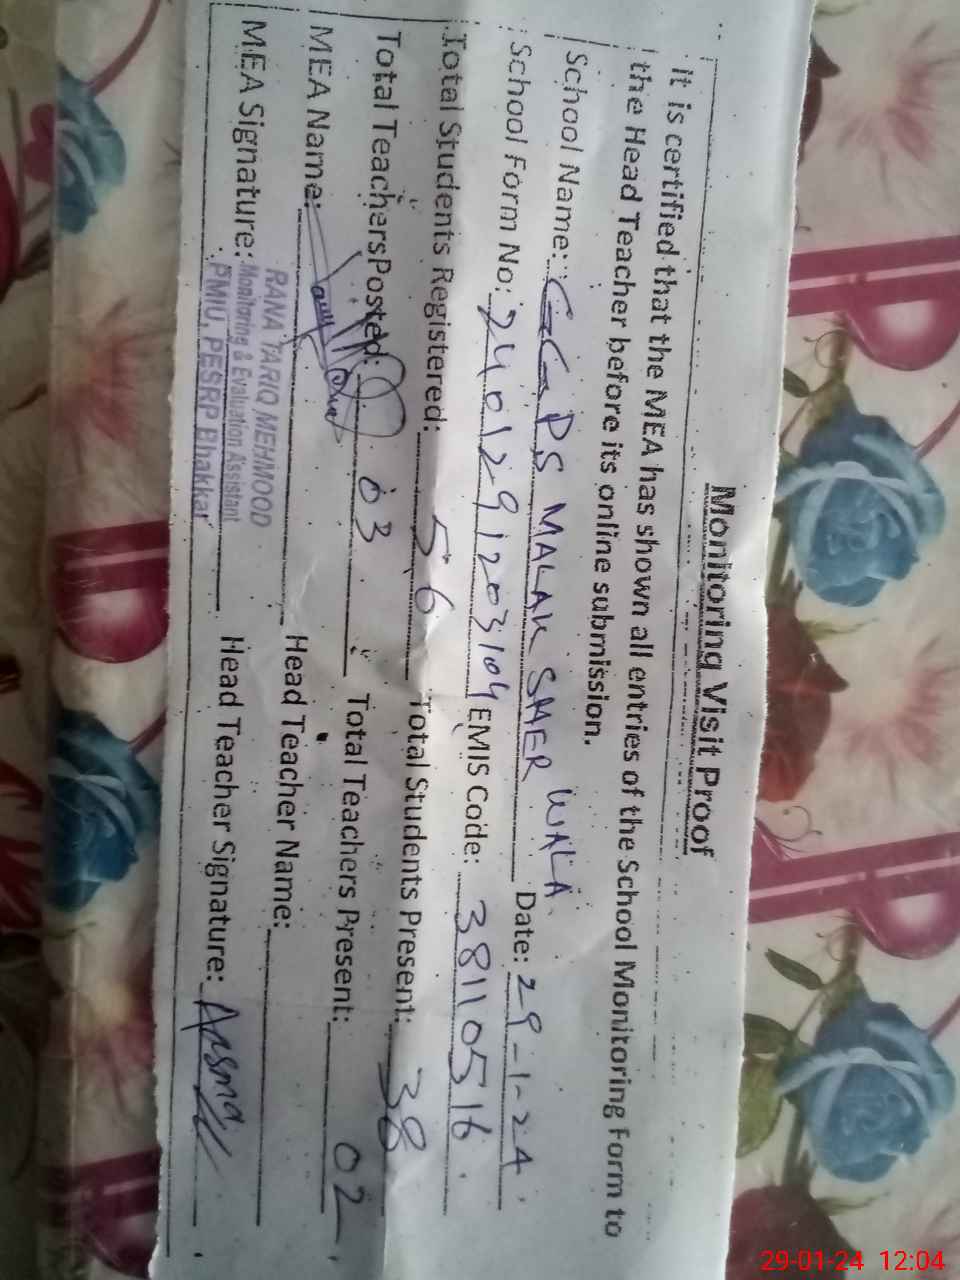 Monitoring Visit Proof
It is certified that the MEA has shown all entries of the School Monitoring Form to
the Head Teacher before its online submission.
School Name: GGPS MALAK SHER WALA Date: 29-1-24
School Form No: 2401291203104 EMIS Code: 38110516
Total Students Registered: 56 Total Students Present: 38
Total Teachers Posted: 03 Total Teachers Present: 02
MEA Name: Head Teacher Name:
RANA TARIQ MEHMOOD
Monitoring & Evaluation Assistant
PMIU, PESRP Bhakkar
MEA Signature: Head Teacher Signature: Asma
29-01-24 12:04